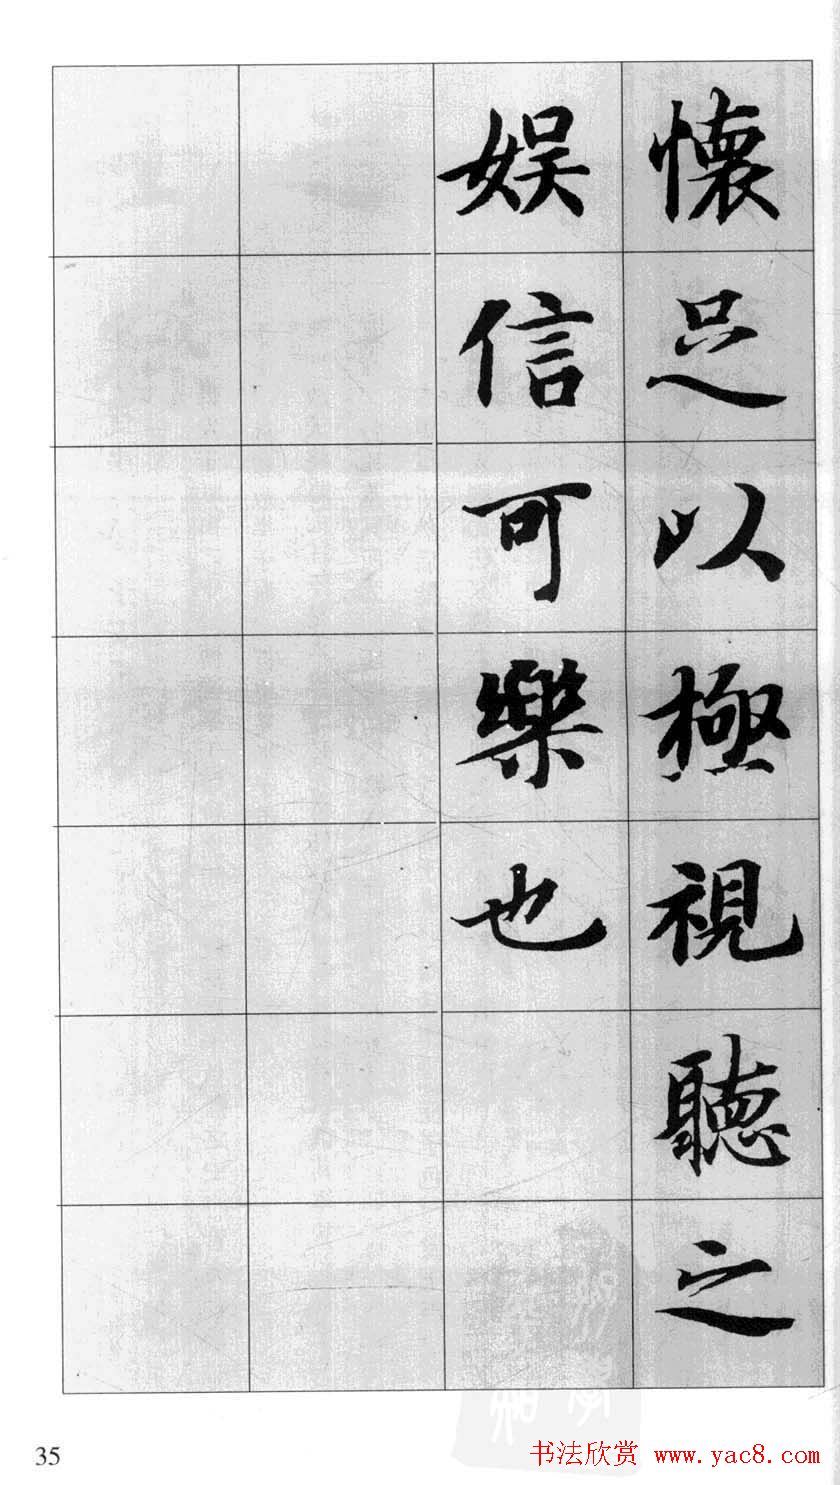 懷足以極視聽之
娱信可樂也
35
书法欣赏 www.yac8.com